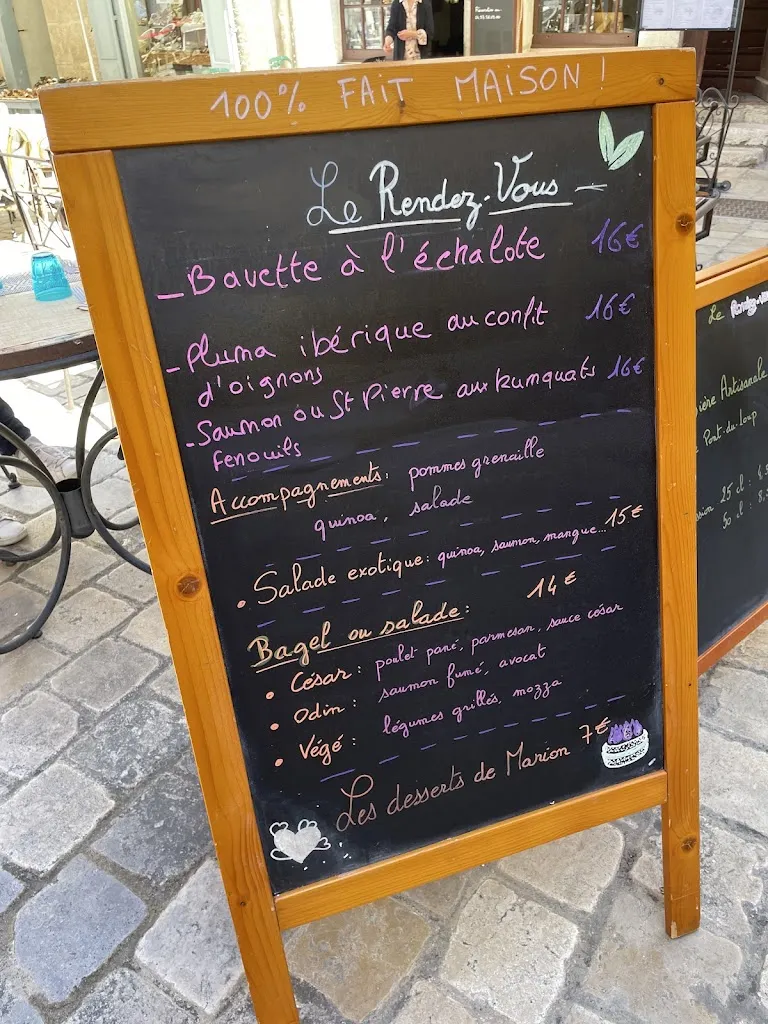 100% FAIT MAISON !
Le Rendez-Vous
- Bavette à l'échalote 16€
- Pluma ibérique au confit 16€
d'oignons
- Saumon ou St Pierre aux kumquats 16€
fenouils
Accompagnements: pommes grenaille
quinoa, salade
• Salade exotique: quinoa, saumon, mangue... 15€
Bagel ou salade: 14€
• César: poulet pané, parmesan, sauce césar
• Odin: saumon fumé, avocat
• Végé: légumes grillés, mozza
Les desserts de Marion 7€
Le Rendez-v
ière Artisanale
Pont-du-Loup
25 cl :
50 cl :